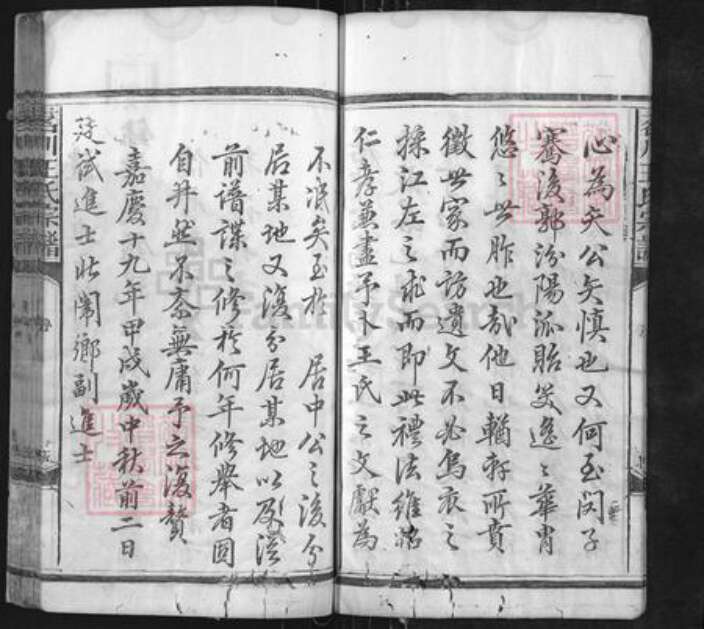 心為矢公矣慎也又何至閔子
騫後郭汾陽派貽笑逸〻華胄
悠〻世胙也哉他日輶軒所賁
徵世家而訪遺文不必烏衣之
採江左之求而即此禮法維
仁孝兼盡予卜王氏之文獻為
不泯矣至於 居中公之後分
居某地又復分居某地以及從
前譜諜之修於何年修舉者固
自井然不紊無庸予之復贅
嘉慶十九年甲戌歲中秋前二日
廷試進士 鄉副進士
王氏宗譜
FamilySearch